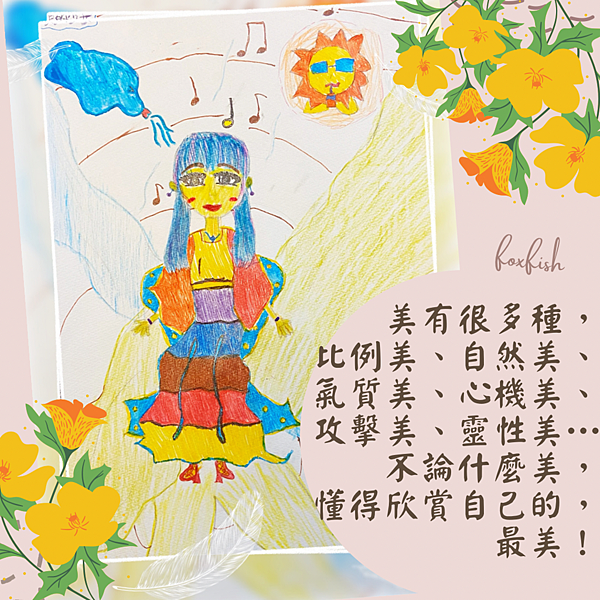 foxfish
美有很多種，
比例美、自然美、
氣質美、心機美、
攻擊美、靈性美…
不論什麼美，
懂得欣賞自己的，
最美！